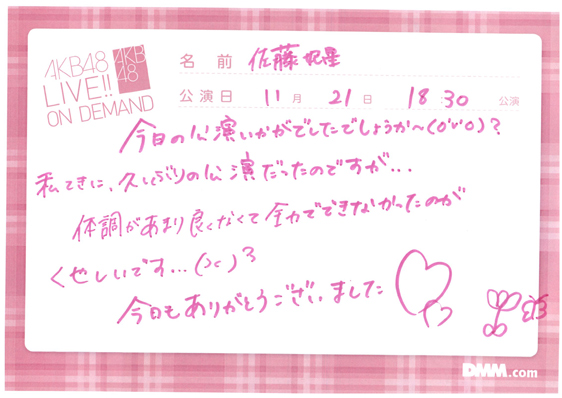 AKB48
LIVE!!
ON DEMAND
AKB
48
名前 佐藤妃星
公演日 11月21日 18:30 公演
今日の公演いかがでしたでしょうか〜(o'ν'o)?
私てきに、久しぶりの公演だったのですが...
体調があまり良くなくて全力でできなかったのが
くやしいです...(><)
今日もありがとうございました
DMM.com